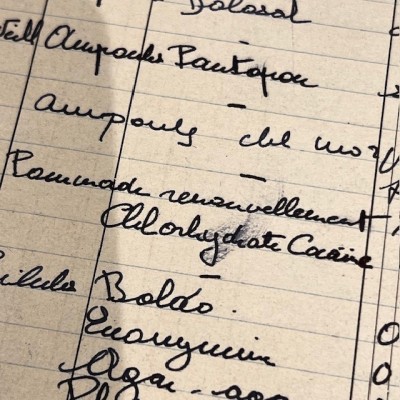 Dolosal
Ampoules Pantopon
Ampoules chl mor
Pommade renouvellement
Chlorhydrate Cocaïne
Pilules Boldo.
Evonymine
Agar-agar